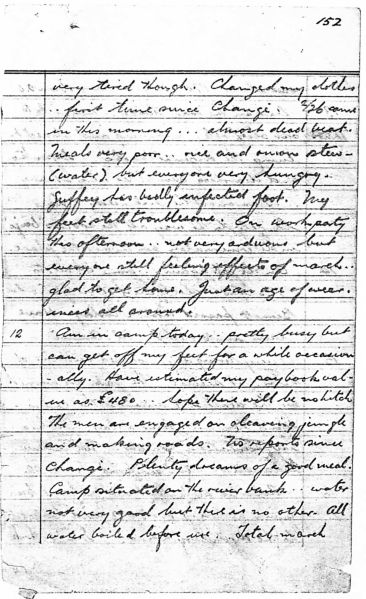 152
very tired though. Changed my clothes
.. first time since Changi. 2/26 came
in this morning ... almost dead beat.
Meals very poor .. rice and onion stew -
(water), but everyone very hungry.
Guffey has badly infected foot. My
feet still troublesome. On work party
this afternoon .. not very arduous but
everyone still feeling effects of march ..
glad to get home. Just an age of wear-
iness all around.
12 Am in camp today .. pretty busy but
can get off my feet for a while occasion
-ally. Have estimated my paybook val-
ue as £480 ... hope there will be no hitch
The men are engaged on cleaving jungle
and making roads. No reports since
Changi. Plenty dreams of a good meal.
Camp situated on the river bank . water
not very good but there is no other. All
water boiled before use. Total march